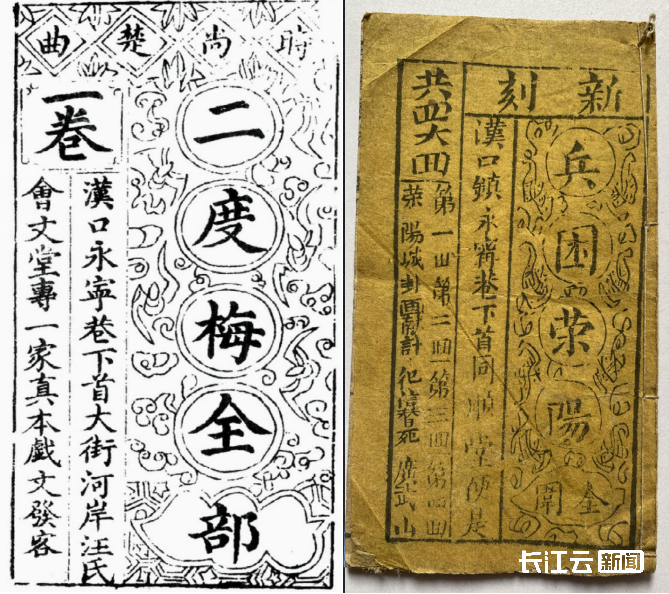 時尚楚曲
二度梅全部
一卷
漢口永寧巷下首大街河岸汪氏
會文堂專一家真本戲文發客
新刻
兵困荣陽
全
漢口鎮永寧巷下首同順堂便是
共四大回
第一回第二回第三回第四回
荣陽城
長江云新闻